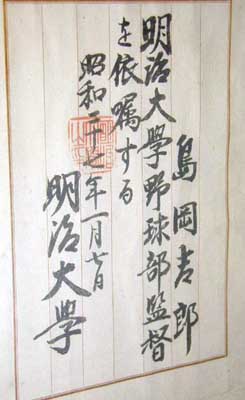 島岡吉郎
明治大學野球部監督
を依嘱する
昭和二十七年一月七日
明治大學